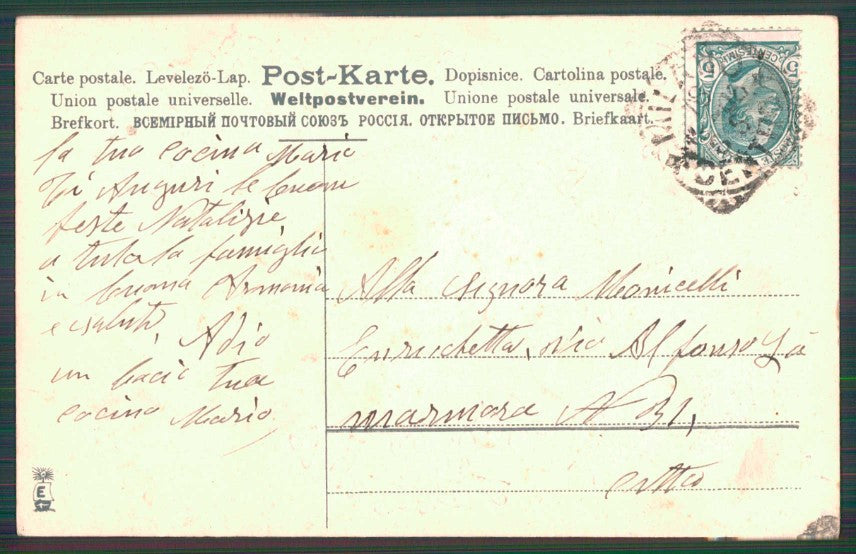 Carte postale. Levelezö-Lap. Post-Karte. Dopisnice. Cartolina postale.
Union postale universelle. Weltpostverein. Unione postale universale.
Brefkort. ВСЕМІРНЫЙ ПОЧТОВЫЙ СОЮЗЪ РОССІЯ. ОТКРЫТОЕ ПИСЬМО. Briefkaart.
la tua cocina Maria
Ti Auguri le buone
feste Natalizie
a tutta la famiglia
in buona Armonia
e saluti, Adio
un bacio tua
cocina Maria
Alla signora Monicelli
Enrichetta, via Alfonso La
marmora N 31,
citta
E